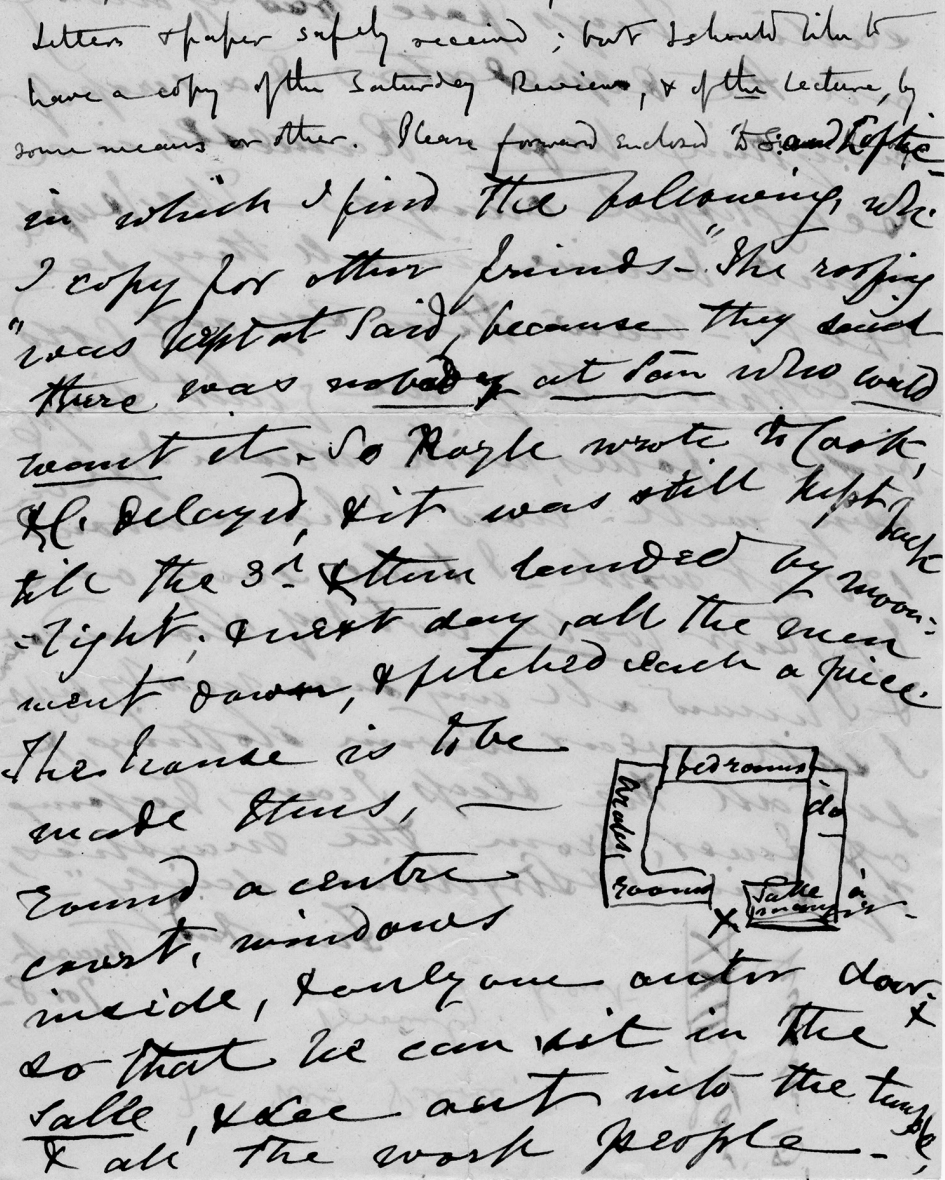 Letters & paper safely received; but I should like to
have a copy of the Saturday Review, & of the Lecture, by
some means or other. Please forward enclosed to S. and Loftie
in which I find the following, wh:
I copy for other friends - "The roofing
"was kept at Said, because they said
there was nobody at San who could
want it. So Royle wrote to Cook,
& C. delayed, & it was still kept back
till the 3rd & then landed by moon-
-light; & next day, all the men
went down, & fetched each a piece.
The house is to be
made thus, —
round a centre
court, windows
inside, & only one outer door x
so that he can sit in the
Salle, & see out into the temple,
& all the work people -
bedrooms
do
Arabs
rooms
Salle à
manger
x